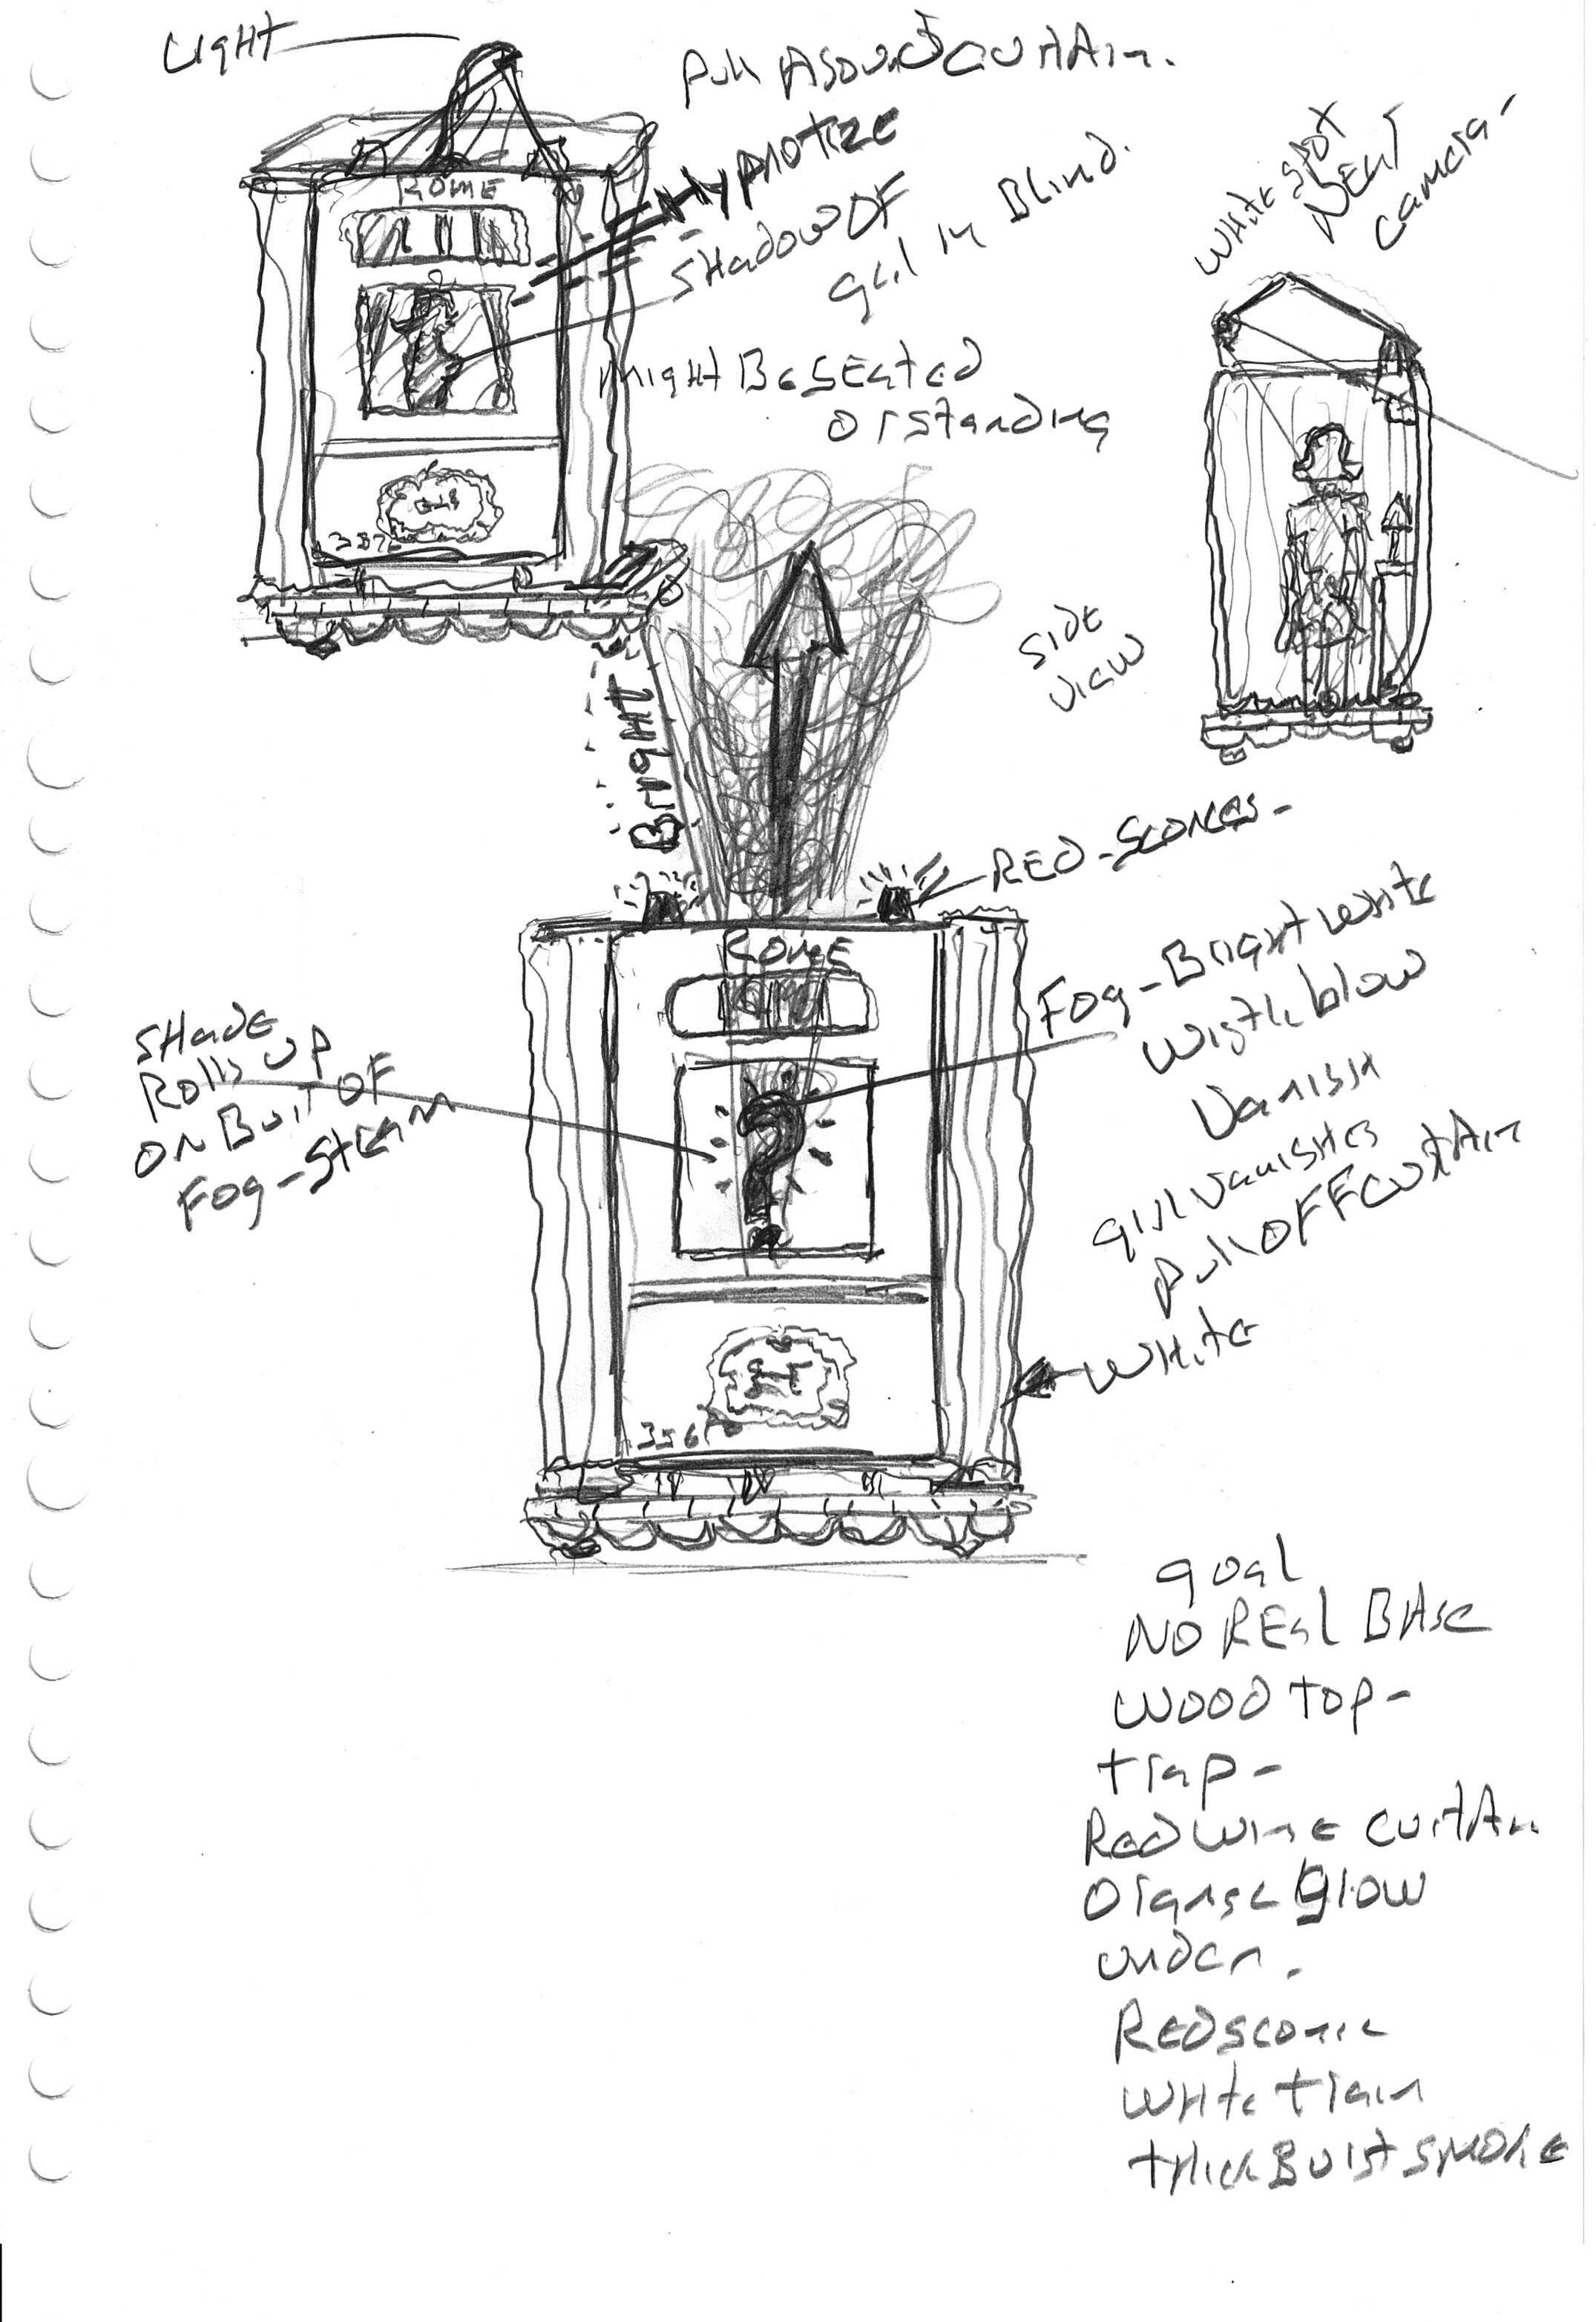 Light
Pull Around Curtain.
Hypnotize
Shadow OF
girl in Blind.
might Be SEated
Or Standing
White Spot
NEXT
Camera -
ROME
357
SidE
View
Bright
RED - SCONCES -
ROME
Fog - Bright White
Wistle blow
Vanish
girl vanishes
Pull OFF Curtain
White
SHadE
Rolls UP
ON Burst OF
Fog - StEam
356
goal
NO REal BAse
WOOD TOP -
trap -
Red Wine Curtain
Orange glow
under.
RED Sconce
White train
thick Burst SMOKE